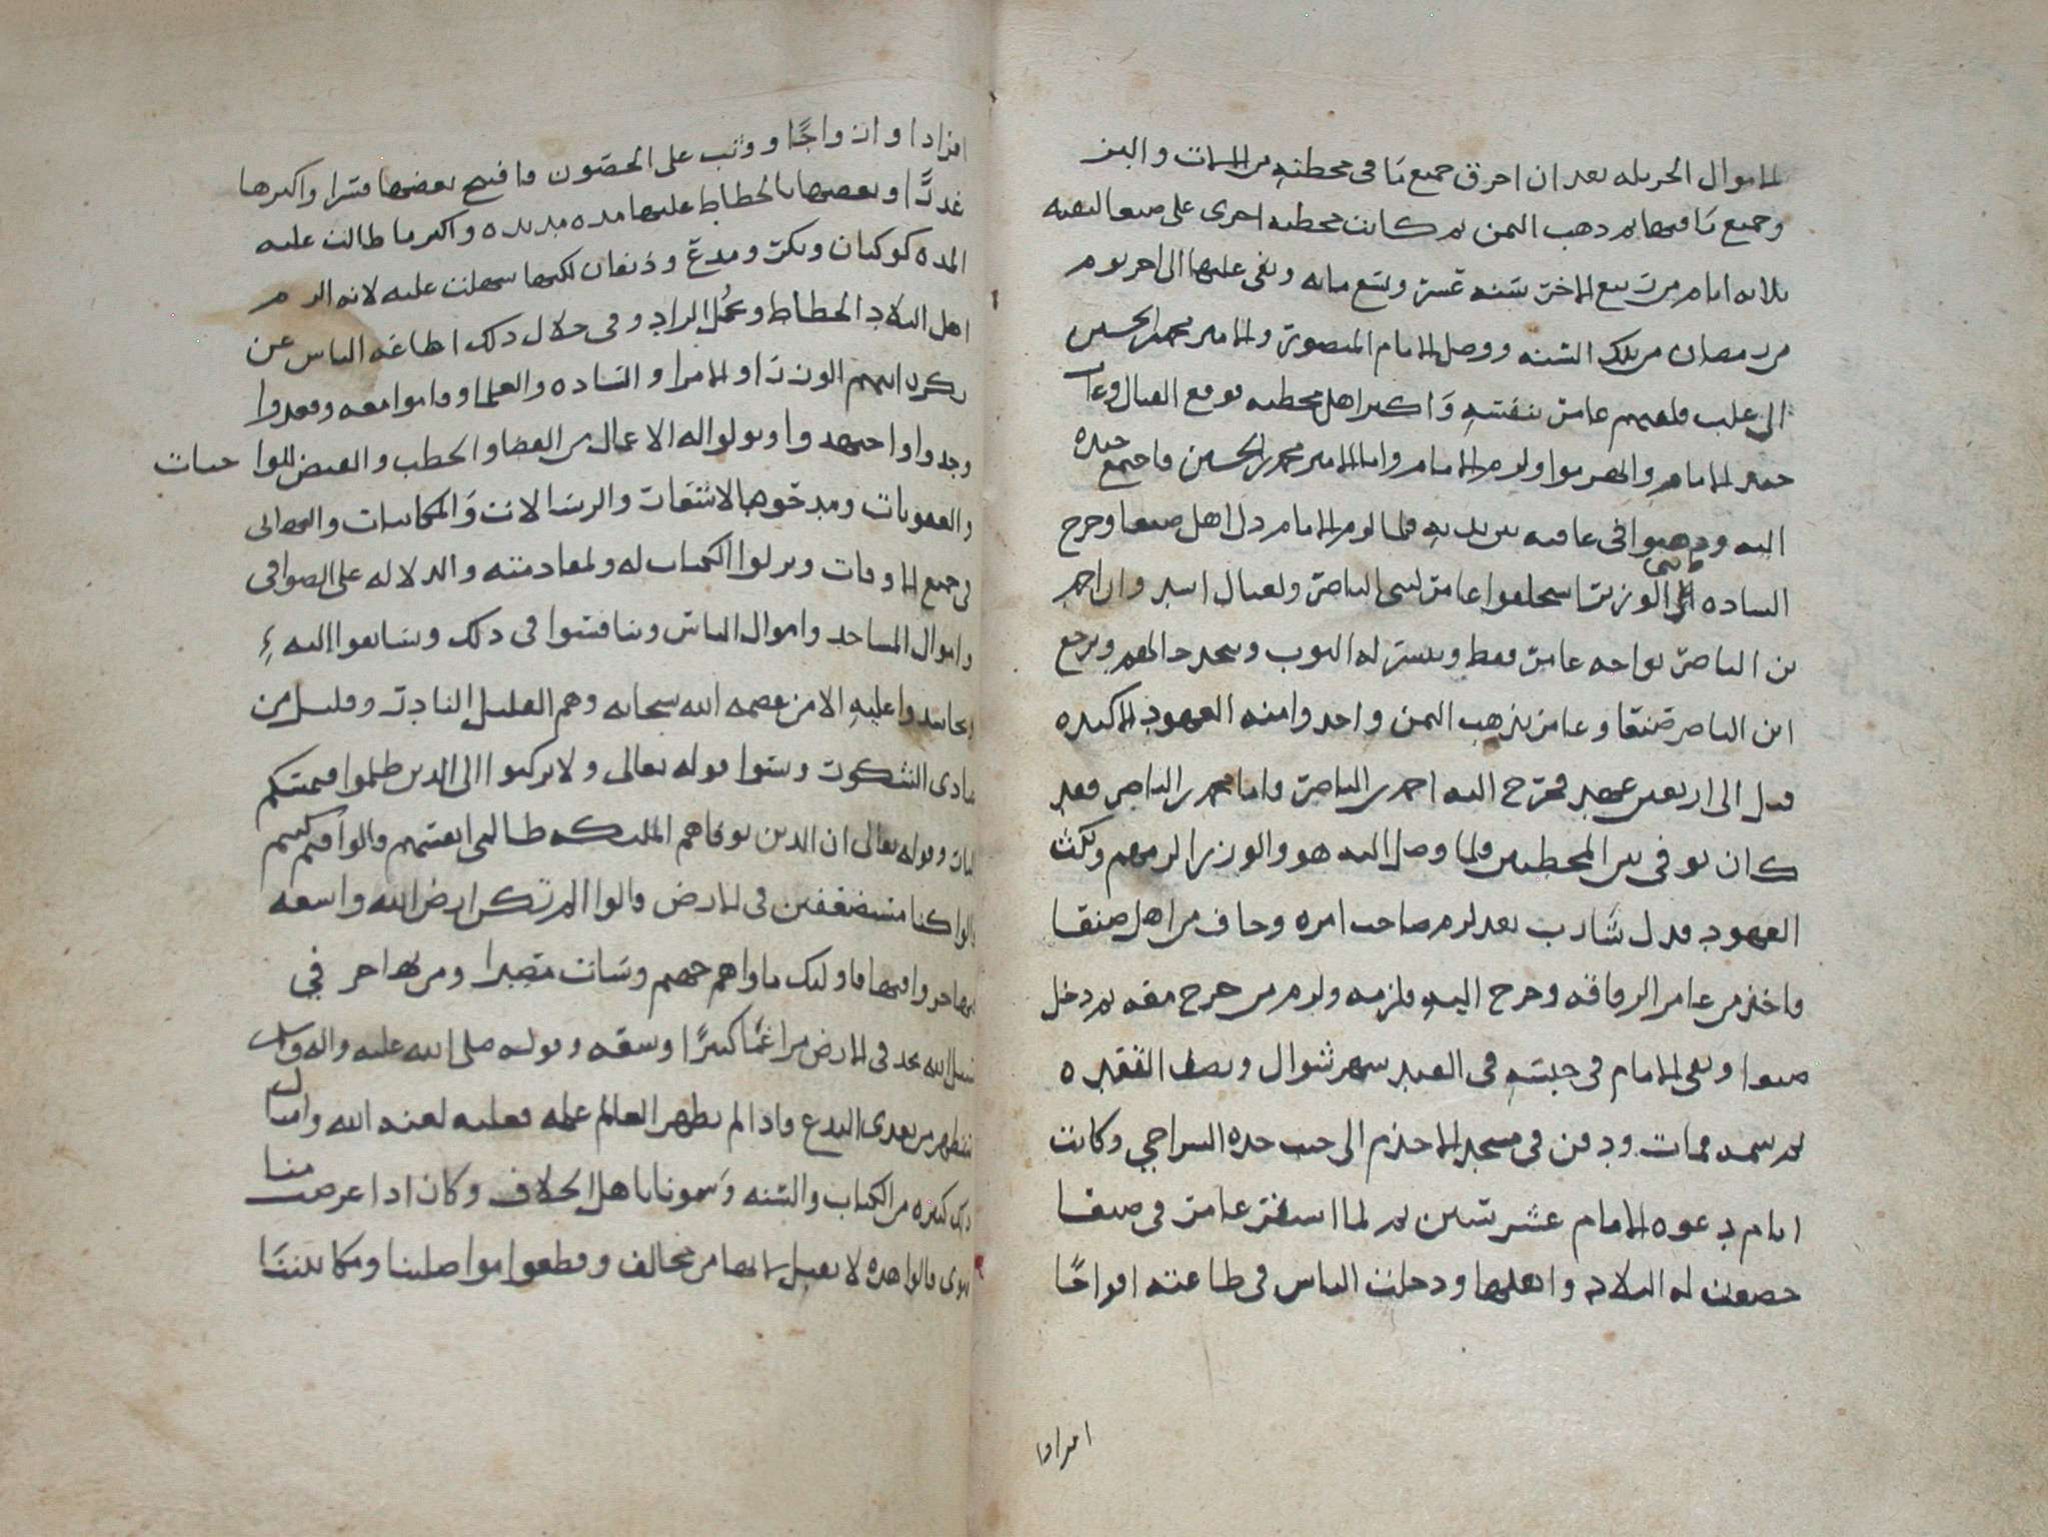 الاموال الجزيله بعد ان احرق جميع ما في محطته من الالات والبز
وجميع ما فيها ثم ذهب اليمن ثم كانت محطته اخرى على صنعا لبقيه
ثلاثه ايام من ربيع الاخر سنه عشر وتسع مايه وبقي عليها الى اخر يوم
من رمضان من تلك السنه ووصل الامام المنصور والامير محمد بن الحسين
الى علب فلقيهم عامر بنفسه واكبر اهل محطته فوقع القتال وعاد
جند الامام وانهزموا ولزم الامام واما الامير محمد بن الحسين فاجتمع جنده
اليه وذهبوا في عافيه بين يديه فلما لزم الامام ذل اهل صنعا وخرج
الساده الى الوزير يستحلفوا عامر لبني الناصر ولعيال اسد وان احمد
بن الناصر يواجه عامر فقط ويستر له الثوب ويتحدد الفهم ويرجع
ابن الناصر صنعا وعامر يذهب اليمن واخذوا منه العهود الاكيده
قيل الى اربعين عهد فخرج اليه احمد بن الناصر واما محمد بن الناصر فقد
كان توفي بين المحطتين ولما وصل اليه هو والوزير الزمهم ونكث
العهود فدل شارب بعد لزم صاحب امره وخاف من اهل صنعا
فاخذ من عامر الرفاقه وخرج اليه فلزمه ولزم من خرج معه ثم دخل
صنعا وبقي الامام في حبسه في القيد شهر شوال ونصف القعده
ثم سمه فمات ودفن في مسجد الاخذم الى جنب جده السراجي وكانت
ايام دعوه الامام عشر سنين ثم لما استقر عامر في صنعا
خضعت له البلاد واهلها ودخلت الناس في طاعته افواجا
افرادا
افرادا وازواجا ووثب على الحصون فافتتح بعضها قسرا واكثرها
غدرا وبعضها بالحطاط عليها مده مديده واكثر ما طالت عليه
المده كوكبان وبكر ومدع وذيفان لكنها سهلت عليه لانه الزم
اهل البلاد الحطاط وحمل الزاد وفي خلال ذلك اطاعه الناس عن
بكره ابيهم الوزرا والامرا والساده والعلما وقاموا معه وقعدوا
وجدوا واجتهدوا وتولوا له الاعمال من القضا والخطب والقبض للواجبات
والعقوبات ومدحوه بالاشعار والرسالات والمكاتبات والتهاني
في جميع الاوقات وبذلوا الكتاب له ولمعاونته والدلاله على الصوافي
واموال المساجد واموال الناس وتنافسوا في ذلك وتسابقوا اليه و
تحاسدوا عليه الا من عصمه الله سبحانه وهم القليل النادر وقليل من
عبادي الشكور ونسوا قوله تعالى ولا تركنوا الى الذين ظلموا فتمسكم
النار وقوله تعالى ان الذين توفاهم الملئكه ظالمي انفسهم قالوا فيم كنتم
قالوا كنا مستضعفين في الارض قالوا الم تكن ارض الله واسعه
فتهاجروا فيها فاوليك ماواهم جهنم وساءت مصيرا ومن يهاجر في
سبيل الله يجد في الارض مراغما كثيرا وسعه وقوله صلى الله عليه واله وسلم
ستظهر من بعدي البدع فاذا لم يظهر العالم علمه فعليه لعنه الله وامثال
ذلك كثيره من الكتاب والسنه وسمونا باهل الخلاف وكان اذا عرضت منا
فتوى قالوا هذه لا تقبل لانها من مخالف وقطعوا مواصلتنا ومكاتبتنا